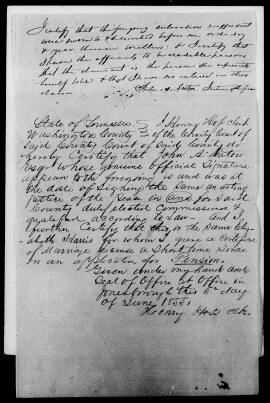 I certify that the foregoing
were sworn to & subscribed before me on the day
& year therein written, & I certify that
I know the affiants to be credible persons
that the claimant is the person she represents
herself to be & that I have no interest in this
claim
John A.
State of Tennessee
Washington County
I Henry Hoss Clerk
of the County Court of
said County Court of Said County do
hereby Certify that John A.
Esqr Whose genuine official Signature
appears to the foregoing is and was at
the date of Signing the Same an acting
Justice of the Peace in and for Said
County duly elected Commissioned &
qualified according to law - and I
further Certify that they is the Same Eliz-
abeth Harris for whom I gave a Certificate
of Marriage License a Short time Since
on an application for Pension.
Given under my hand and
Seal of Office at Office in
Jonesborough this day
of June 185
Henry Hoss Clk.